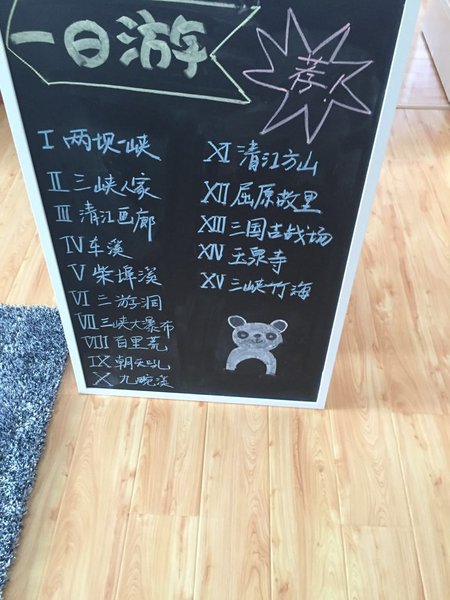 一日游
荐！
I 两坝一峡
II 三峡人家
III 清江画廊
IV 车溪
V 柴埠溪
VI 三游洞
VII 三峡大瀑布
VIII 百里荒
IX 朝天吼
X 九畹溪
XI 清江方山
XII 屈原故里
XIII 三国古战场
XIV 玉泉寺
XV 三峡竹海